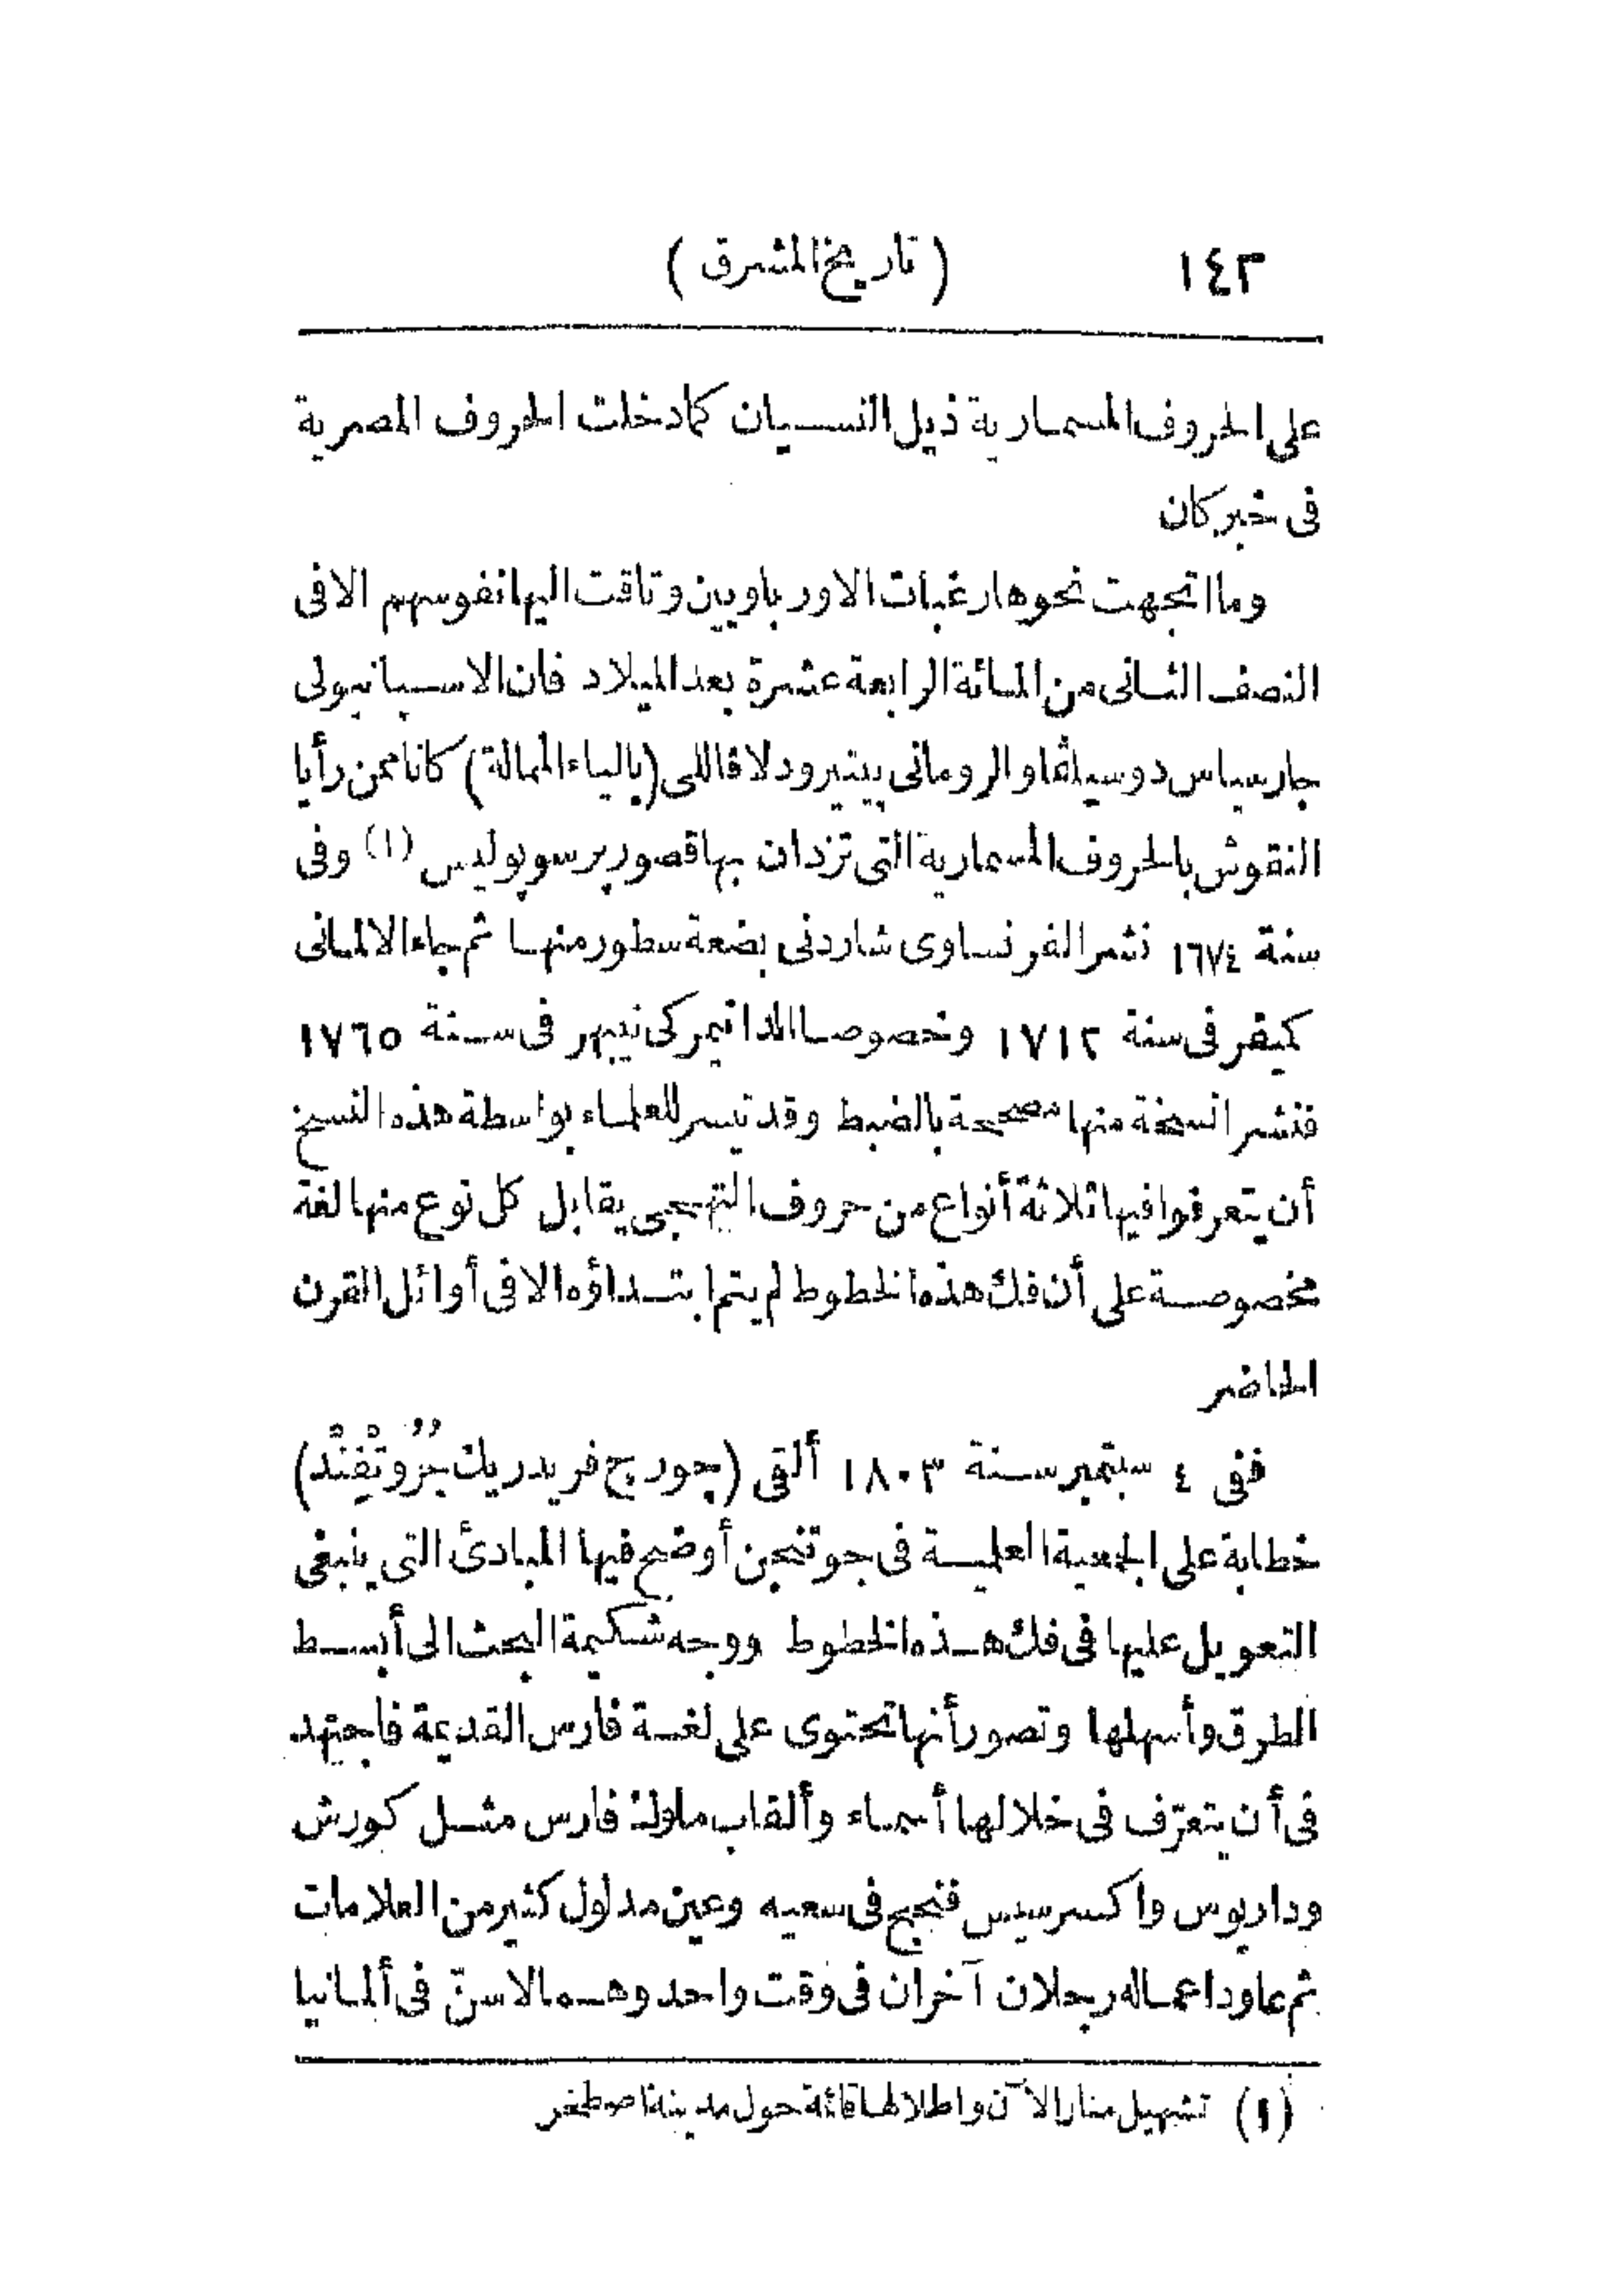 ١٤٣ ( تاريخ المشرق )
على الحروف المسمارية ذيل النسيان كما دخلت الحروف المصرية
فى خبر كان
وما اتجهت نحوها رغبات الاورباويين وتاقت اليها نفوسهم الا فى
النصف الثانى من المائة الرابعة عشرة بعد الميلاد فان الاسبانيولى
جارسياس دوسيلڤا والرومانى پيتيرو دلا ڤاللى (بالياء الممالة) كانا ممن رأيا
النقوش بالحروف المسمارية التى تزدان بها قصور پرسوپوليس (١) وفى
سنة ١٦٧٤ نشر الفرنساوى شاردنى بضعة سطور منها ثم جاء الالمانى
كيقر فى سنة ١٧١٢ وخصوصا الدانيمركى نيبهر فى سنة ١٧٦٥
فنشرا نسخة منها مصححة بالضبط وقد تيسر للعلماء بواسطة هذه النسخ
أن يتعرفوا فيها ثلاثة أنواع من حروف التهجى يقابل كل نوع منها لغة
مخصوصة على أن فك هذه الخطوط لم يتم ابتداؤه الا فى أوائل القرن
الحاضر
ففى ٤ سبتمبر سنة ١٨٠٣ ألقى (چورچ فريدريك جُرُوتْفِنْد)
خطابة على الجمعية العلمية فى جوتنجن أوضح فيها المبادئ التى ينبغى
التعويل عليها فى فك هذه الخطوط ووجه شكيمة البحث الى أبسط
الطرق وأسهلها وتصور أنها تحتوى على لغة فارس القديمة فاجتهد
فى أن يتعرّف فى خلالها أسماء وألقاب ملوك فارس مثل كورش
وداريوس واكسرسيس فنجح فى سعيه وعين مدلول كثير من العلامات
ثم عاود اعماله رجلان آخران فى وقت واحد وهما لاسنّ فى ألمانيا
(١) تشهيل منار الآن واطلالها قائمة حول مدينة اصطخر